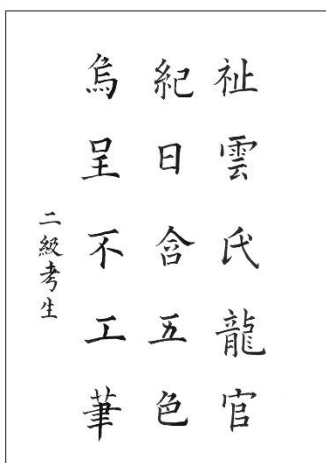 祉雲氏龍官
紀日含五色
烏呈不工筆
二級考生